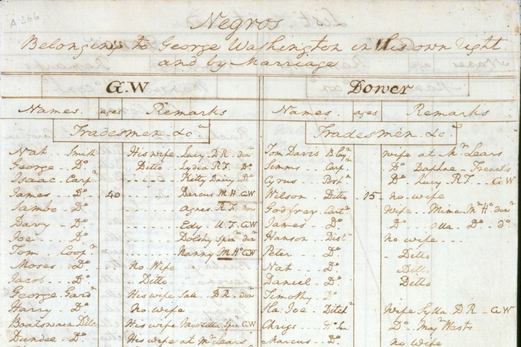 Negros
Belonging to George Washington in his own right
and by Marriage
G.W Dower
Names ages Remarks Names ages Remarks
Tradesmen &cª Tradesmen &cª
Nat Smith His wife Lucy D.R. Dr Tom Davis wife at Mr Lears
George Dº Ditto Lydia R.F. Dº Simms Carpr Dº Daphne French's
Isaac Carpr Kitty Dairy Dr Cyrus Dº Lucy R.F. GW
James Dº 40 Darcus M.H. GW Wilson Ditto 15 no wife
Sambo Dº Agnes R.F. Godfrey Wife Mima M.H. Dr
Davy Dº Edy U.F. GW James Dº Dº
Joe Dº Dolshy Spin Dr Hanson Distr no wife
Tom Coopr Nanny M.H. GW Peter Dº Ditto
Moses Dº no Wife Nat Dº Ditto
Jacob Dº Ditto Daniel Dº Ditto
George Gardr His wife D.R. Timothy Dº
Harry Dº no wife Joe Ditchr Wife Sylla D.R. GW
Boatswain Ditto His wife Myrtilla Spin GW Chriss Dº Majr Wests
Dundee Dº His wife at Mr Lears Marcus Dº no wife